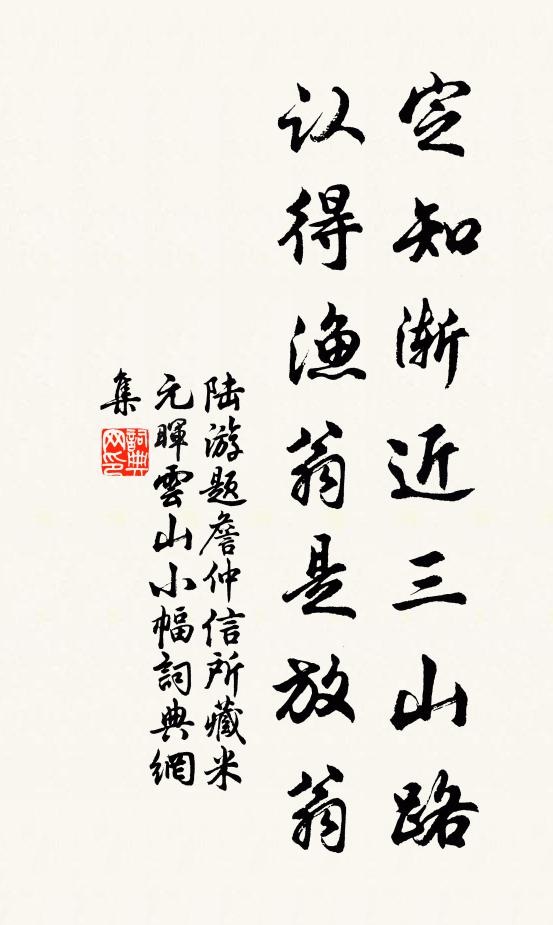 定知渐近三山路
认得渔翁是放翁
陆游题詹仲信所藏米
元暉雲山小幅詞典網
集
詞典网印